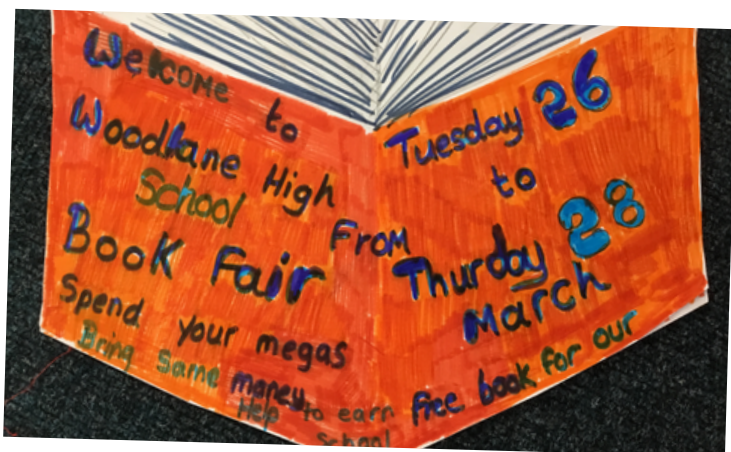 Welcome to
Woodlane High
School
Book Fair From
Tuesday 26
to
Thurday 28
March
Spend your megas
Bring some money
Help to earn free book for our
school